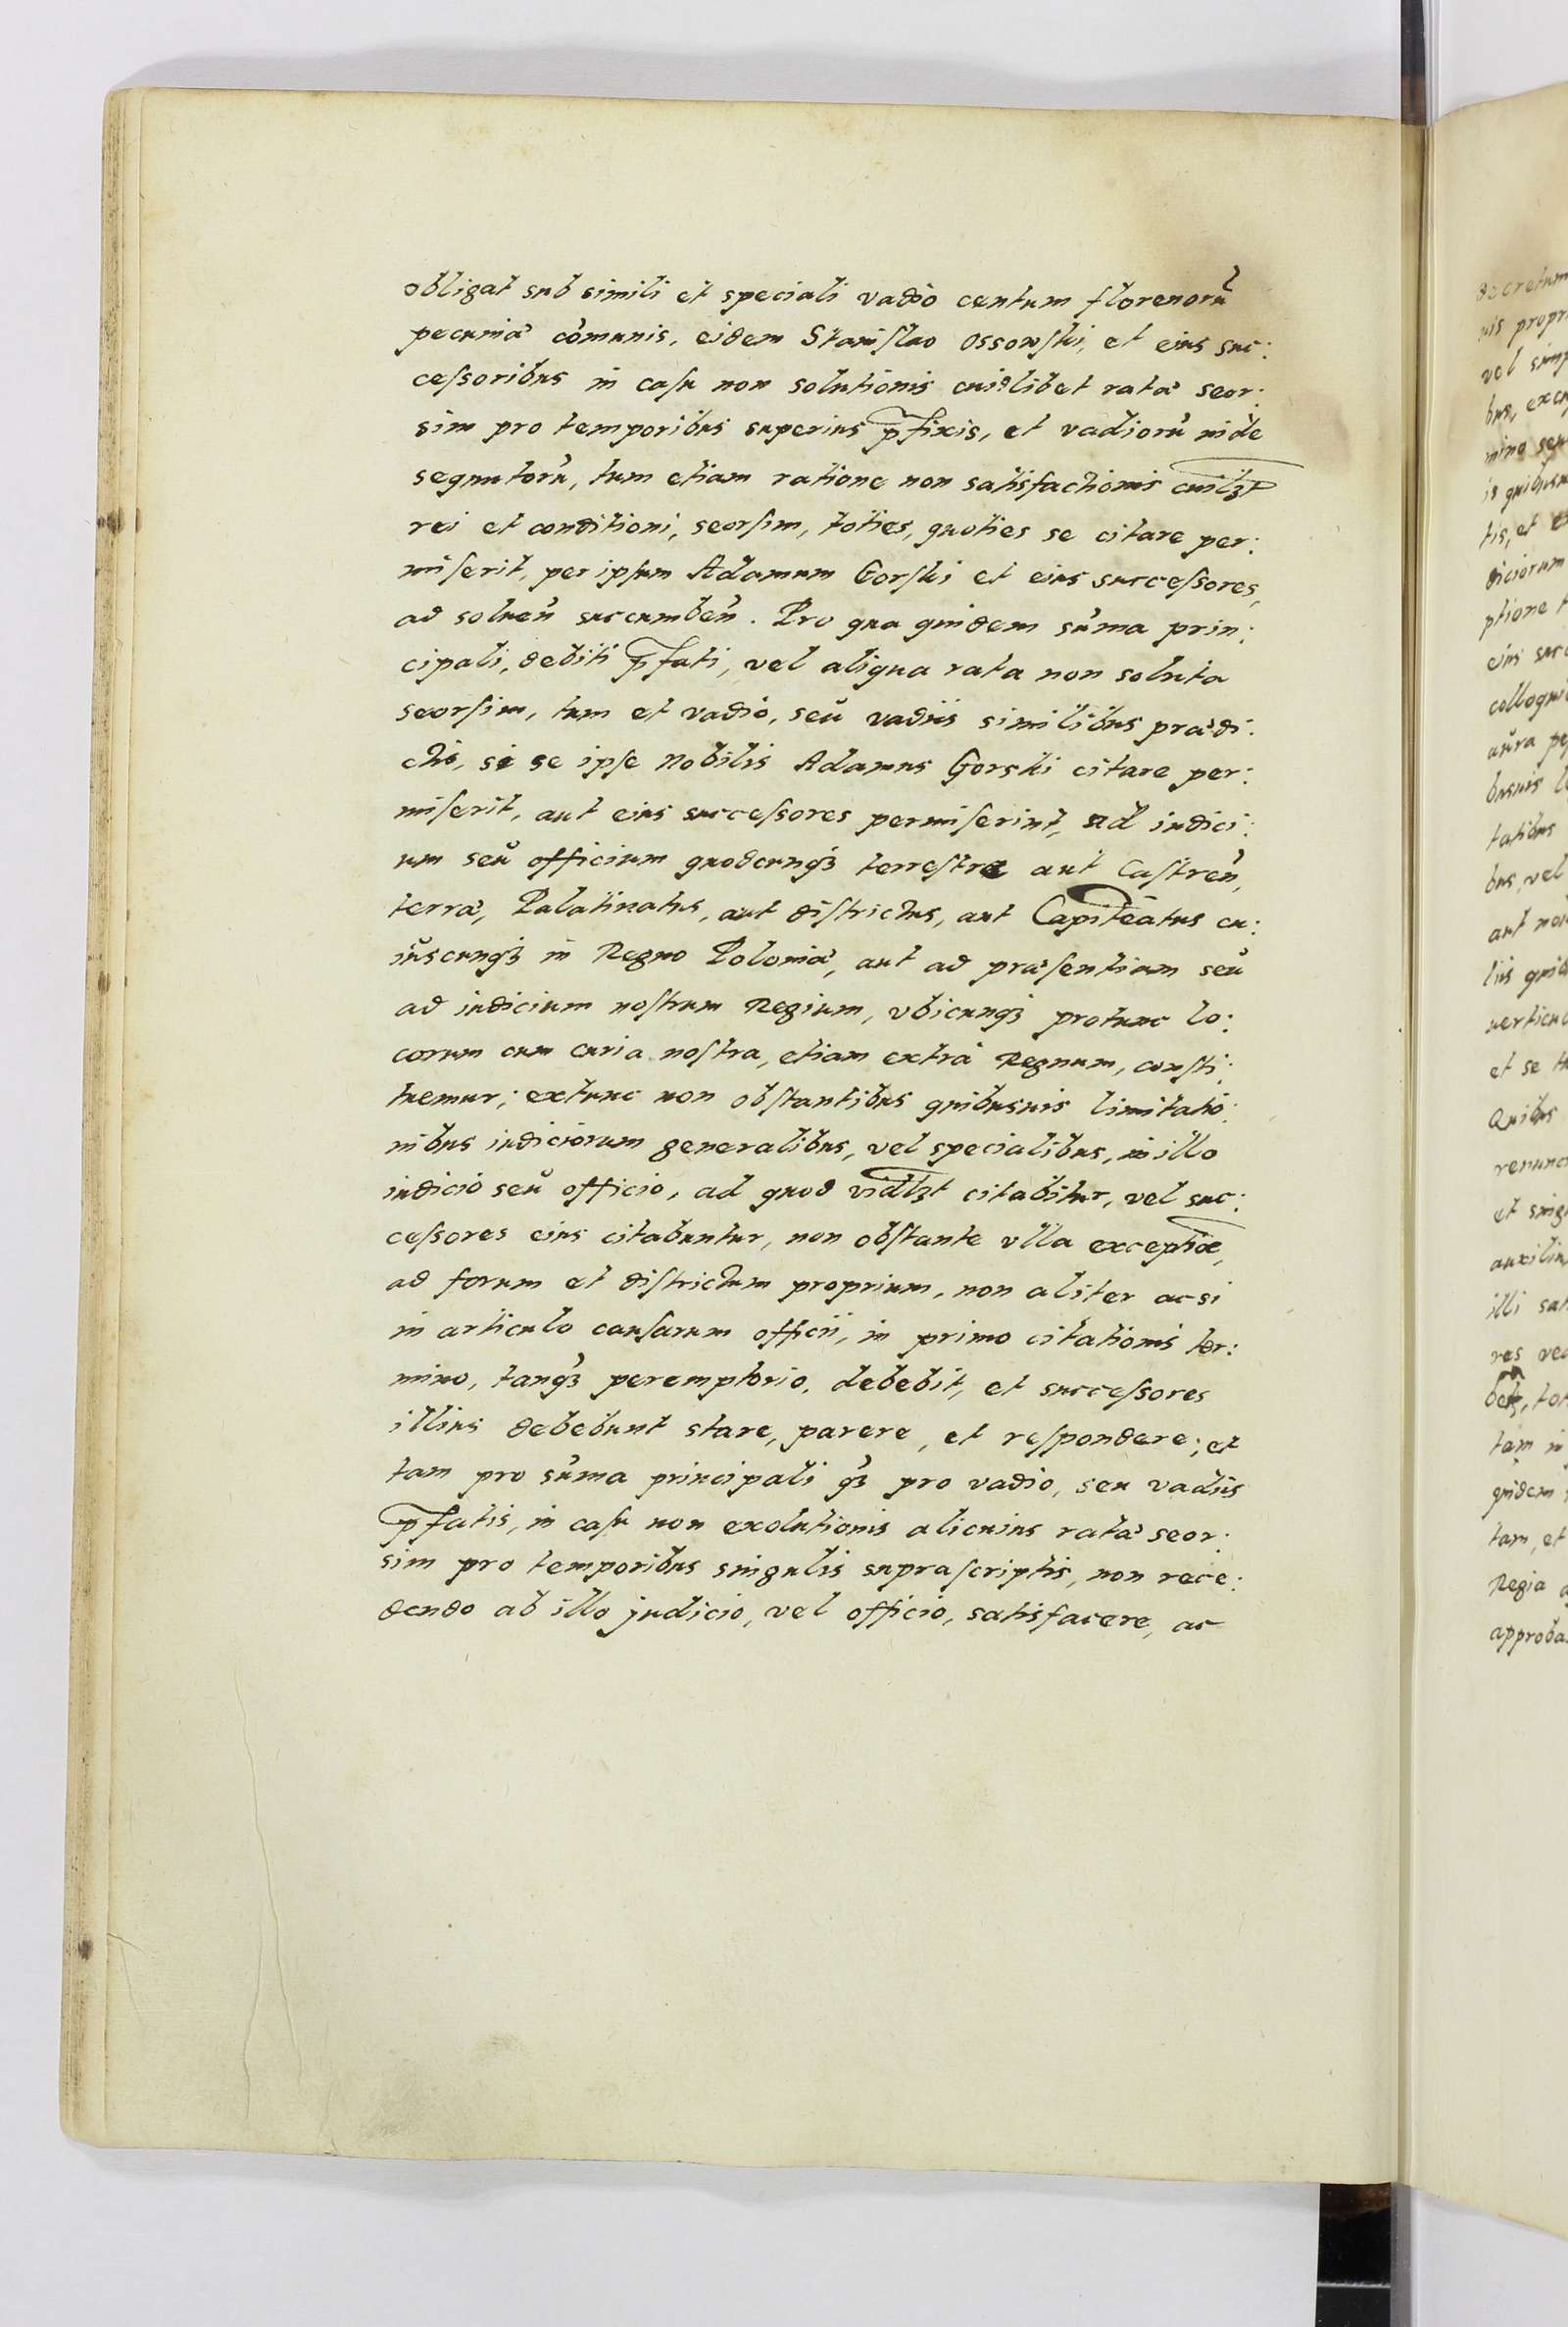 obligat sub simili et speciali vadio centum florenorũ
pecuniæ cõmunis, eidem Stanislao Ossowski, et eius suc:
cessoribus in casu non solutionis cuiꝰlibet ratæ seor:
sim pro temporibus superius p̃fixis, et vadiorũ inde
sequutorũ, tum etiam ratione non satisfactionis cuilꝫt
rei et conditioni, seorsim, toties, quoties se citare per:
miserit, per ipsum Adamum Gorski et eius successores,
ad soluen̄ succumben̄. Pro qua quidem sũma prin:
cipali, debiti p̃fati, vel aliqua rata non soluta
seorsim, tum et vadio, seu vadiis similibus prædi:
ctis, si se ipse Nobilis Adamus Gorski citare per:
miserit, aut eius successores permiserint, ad iudici:
um seu officium quodcunqꝫ terrestre aut Castren̄,
terræ, Palatinatus, aut districtus, aut Capiteatus cu:
iuscunqꝫ in Regno Poloniæ, aut ad præsentiam seu
ad iudicium nostrum Regium, vbicunqꝫ protunc lo:
corum cum curia nostra, etiam extra Regnum, consti:
tuemur; extunc non obstantibus quibusuis limitatio:
nibus iudiciorum generalibus, vel specialibus, in illo
iudicio seu officio, ad quod vidlꝫt citabitur, vel suc:
cessores eius citabuntur, non obstante vlla exceptiõe,
ad forum et districtum proprium, non aliter ac si
in articulo causarum officii, in primo citationis ter:
mino, tanqꝫ peremptorio, debebit, et successores
illius debebunt stare, parere, et respondere; et
tam pro sũma principali qꝫ pro vadio, seu vadiis
p̃fatis, in casu non exolutionis alicuius ratæ seor:
sim pro temporibus singulis suprascriptis, non rece:
dendo ab illo judicio, vel officio, satisfacere, ac